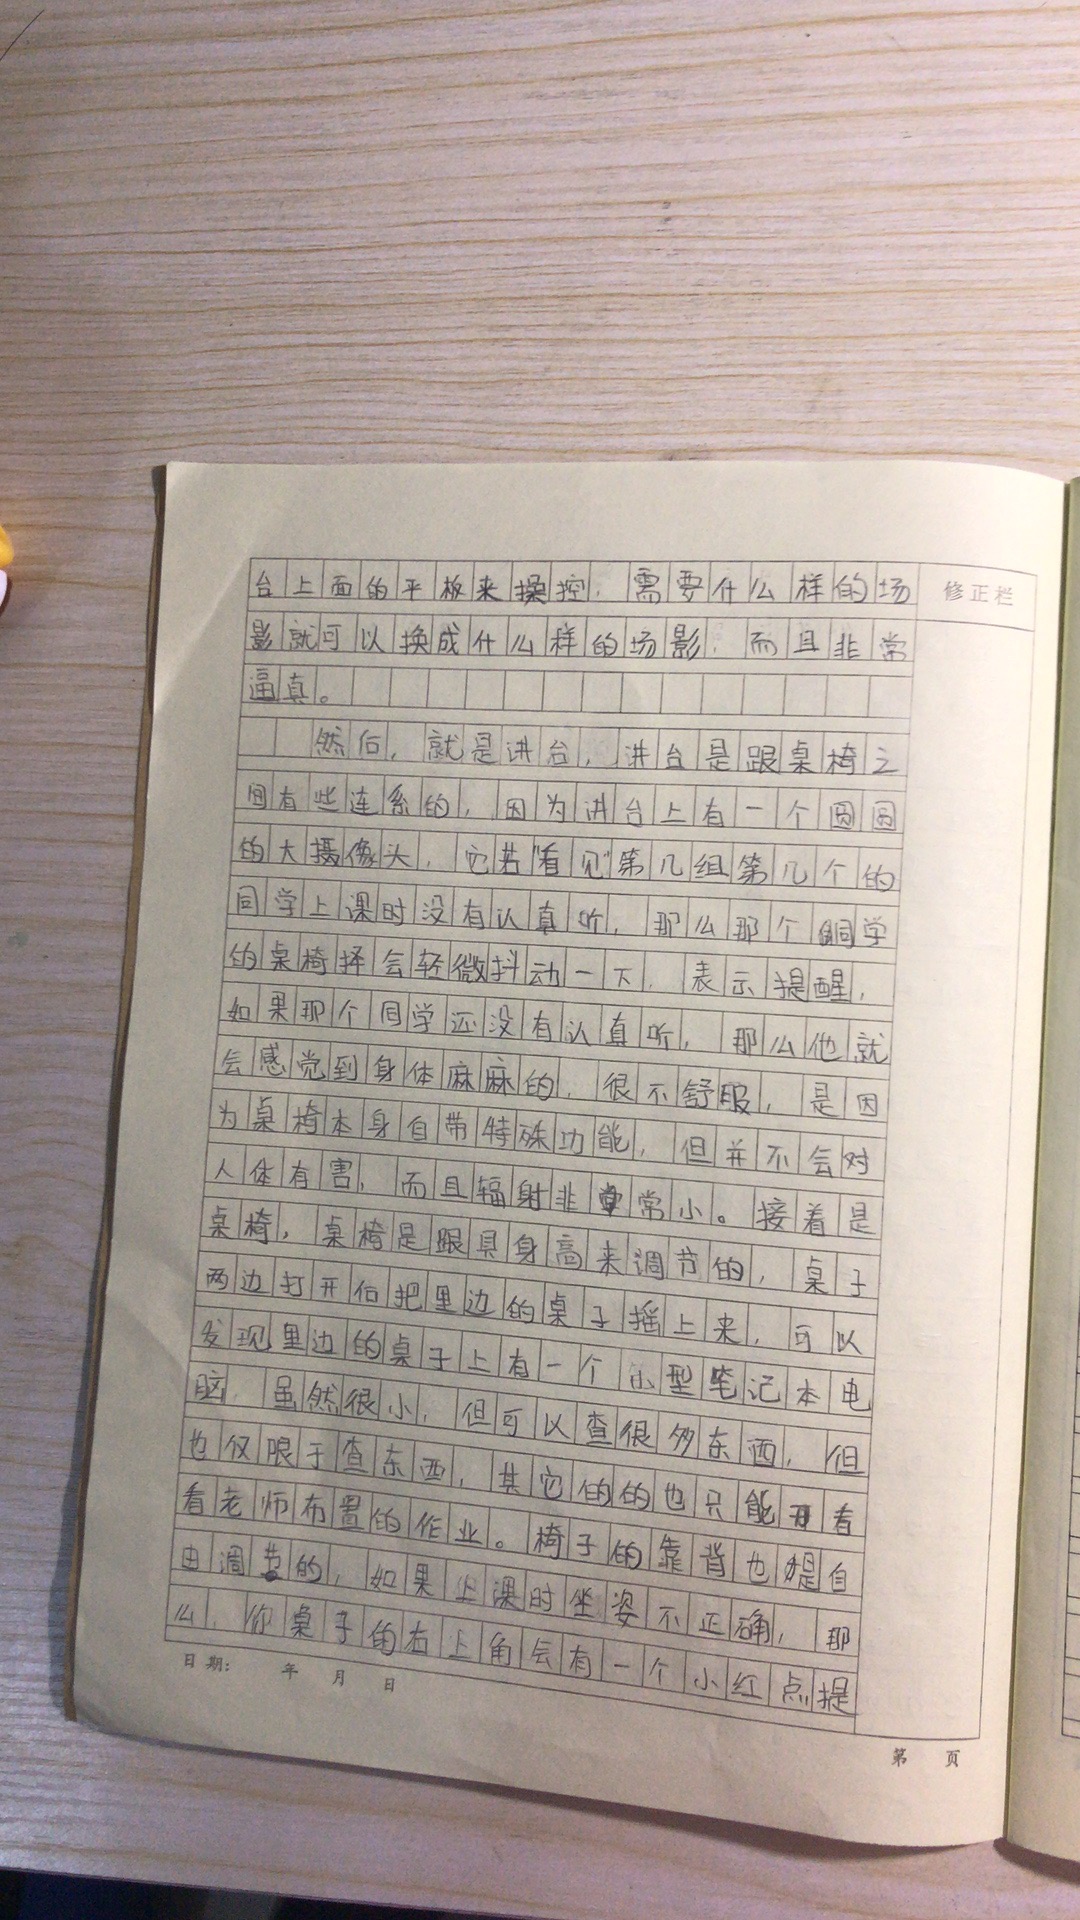 台上面的平板来操控，需要什么样的场
修正栏
影就可以换成什么样的场影，而且非常
逼真。
然后，就是讲台，讲台是跟桌椅之
间有些连系的，因为讲台上有一个圆圆
的大摄像头，它若"看见"第几组第几个的
同学上课时没有认真听，那么那个同学
的桌椅择会轻微抖动一下，表示提醒，
如果那个同学还没有认真听，那么他就
会感觉到身体麻麻的，很不舒服，是因
为桌椅本身自带特殊功能，但并不会对
人体有害，而且辐射非常小。接着是
桌椅，桌椅是跟具身高来调节的，桌子
两边打开后把里边的桌子摇上来，可以
发现里边的桌子上有一个小型笔记本电
脑，虽然很小，但可以查很多东西，但
也仅限于查东西，其它的的也只能看
看老师布置的作业。椅子的靠背也是自
由调节的，如果上课时坐姿不正确，那
么，你桌子的右上角会有一个小红点提
日期： 年 月 日
第 页